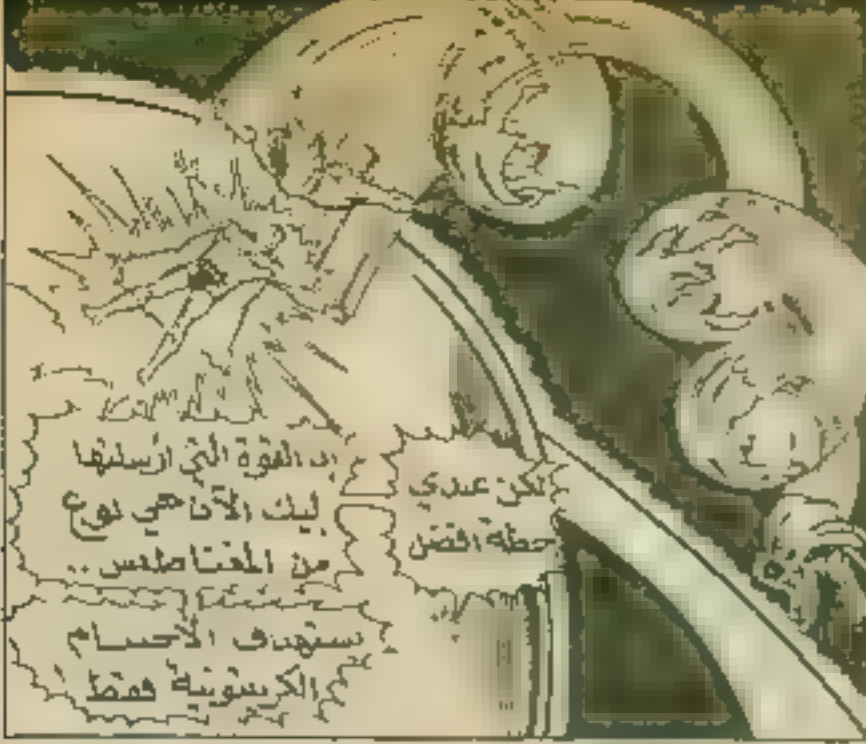 لكن عندي
خطة افضل
إن القوة التي ارسلتها
إليك الآن هي نوع
من المغناطيس ..
تستهدف الأجسام
الكربتونية فقط